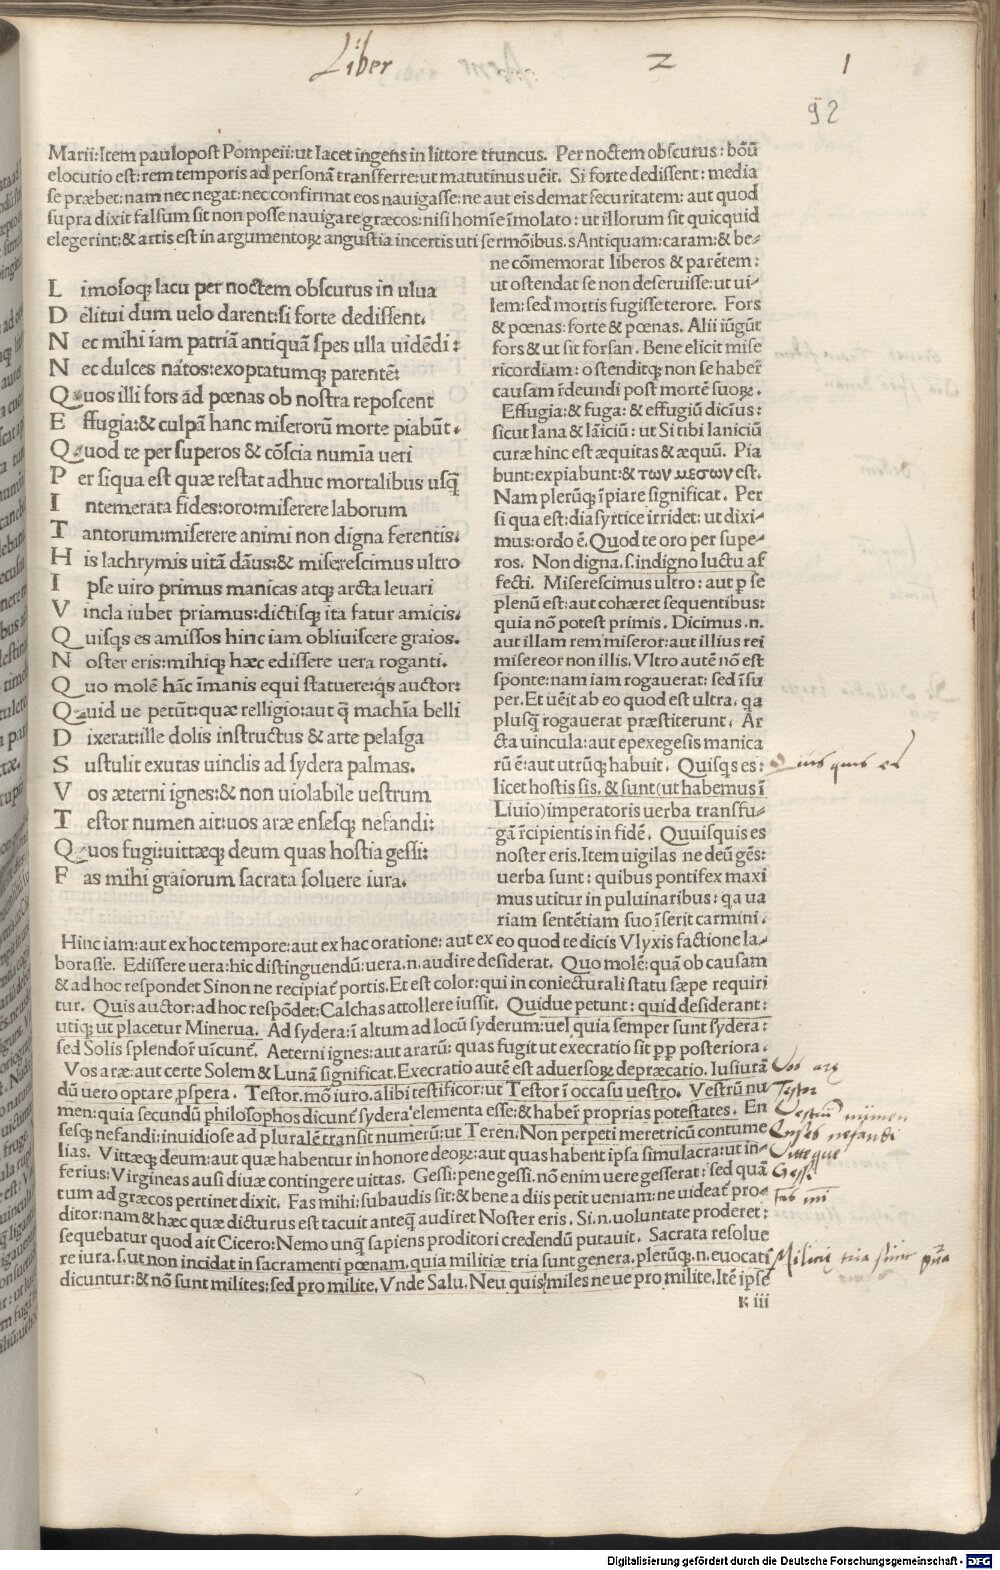 Liber 2 1
92
Marii:Item paulopost Pompeii:ut Iacet ingens in littore truncus. Per noctem obscurus: bōū
elocutio est:rem temporis ad personā transferre:ut matutinus uēit. Si forte dedissent: media
se præbet:nam nec negat:nec confirmat eos nauigasse:ne aut eis demat securitatem: aut quod
supra dixit falsum sit non posse nauigare græcos:nisi homīe īmolato: ut illorum sit quicquid
elegerint:& artis est in argumentoꝝ angustia incertis uti sermōibus.sAntiquam:caram:& be-
L imosoqꝫ lacu per noctem obscurus in ulua
D elitui dum uelo darent:si forte dedissent.
N ec mihi iam patriā antiquā spes ulla uidēdi:
N ec dulces natos:exoptatumqꝫ parentē:
Q uos illi fors ad pœnas ob nostra reposcent
E ffugia:& culpā hanc miserorū morte piabūt.
Q uod te per superos & cōscia numīa ueri
P er siqua est quæ restat adhuc mortalibus usq̄
I ntemerata fides:oro:miserere laborum
T antorum:miserere animi non digna ferentis.
H is lachrymis uitā dāus:& miserescimus ultro
I pse uiro primus manicas atqꝫ arcta leuari
V incla iubet priamus:dictisqꝫ ita fatur amicis.
Q uisqs es amissos hinc iam obliuiscere graios.
N oster eris:mihiqꝫ hæc edissere uera roganti.
Q uo molē hāc īmanis equi statuere:qs auctor:
Q uid ue petūt:quæ relligio:aut q̄ machīa belli
D ixerat:ille dolis instructus & arte pelasga
S ustulit exutas uinclis ad sydera palmas.
V os æterni ignes:& non uiolabile uestrum
T estor numen ait:uos aræ ensesqꝫ nefandi:
Q uos fugi:uittæqꝫ deum quas hostia gessi:
F as mihi graiorum sacrata soluere iura.
ne cōmemorat liberos & parētem:
ut ostendat se non deseruisse:ut ui-
lem:sed mortis fugisse terore. Fors
& pœnas:forte & pœnas. Alii iūgūt
fors & ut sit forsan. Bene elicit mise
ricordiam: ostenditqꝫ non se haber̄
causam īdeundi post mortē suoꝝ.
Effugia:& fuga: & effugiū dicīus:
sicut lana & lāiciū: ut Si tibi laniciū
curæ hinc est æquitas & æquū. Pia
bunt:expiabunt:& των μεσων est.
Nam plerūqꝫ īpiare significat. Per
si qua est:diasyrtice irridet: ut dixi-
mus:ordo ē.Quod te oro per supe-
ros. Non digna.s.indigno luctu af
fecti. Miserescimus ultro: aut p se
plenū est:aut cohæret sequentibus:
quia nō potest primis. Dicimus .n.
aut illam rem miseror:aut illius rei
misereor non illis. Vltro autē nō est
sponte:nam iam rogauerat: sed īsu
per.Et uēit ab eo quod est ultra. qa
plusq̄ rogauerat præstiterunt. Ar
cta uincula:aut epexegesis manica
rū ē:aut utrūqꝫ habuit. Quisqs es:
licet hostis sis. & sunt(ut habemus ī
Liuio)imperatoris uerba transfu-
gā r̄cipientis in fidē. Quuisquis es
noster eris.Item uigilas ne deū gēs:
uerba sunt: quibus pontifex maxi
mus utitur in puluinaribus: qa ua
riam sentētiam suo īserit carmini.
Quis quis es
Hinc iam:aut ex hoc tempore:aut ex hac oratione: aut ex eo quod te dicis Vlyxis factione la-
borasse. Edissere uera:hic distinguendū:uera.n.audire desiderat. Quo molē:quā ob causam
& ad hoc respondet Sinon ne recipiat̄ portis.Et est color:qui in coniecturali statu sæpe requiri
tur. Quis auctor:ad hoc respōdet:Calchas attollere iussit. Quidue petunt: quid desiderant:
utiqꝫ ut placetur Minerua. Ad sydera:ī altum ad locū syderum:uel quia semper sunt sydera:
sed Solis splendor̄ uīcunt̄. Aeterni ignes:aut ararū: quas fugit ut execratio sit pp posteriora.
Vos aræ:aut certe Solem & Lunā significat.Execratio autē est aduersoꝝ depræcatio. Iusiurā
dū uero optare pspera. Testor.mō iuro.alibi testificor:ut Testor ī occasu uestro. Vestrū nu
men:quia secundū philosophos dicunt̄ sydera elementa esse:& haber̄ proprias potestates. En
sesqꝫ nefandi:inuidiose ad pluralē transit numerū:ut Teren.Non perpeti meretricū contume
lias. Vittæqꝫ deum:aut quæ habentur in honore deoꝝ:aut quas habent ipsa simulacra:ut in-
ferius:Virgineas ausi diuæ contingere uittas. Gessi:pene gessi.nō enim uere gesserat: sed quā
tum ad græcos pertinet dixit. Fas mihi:subaudis sit:& bene a diis petit ueniam:ne uideat̄ pro-
ditor:nam & hæc quæ dicturus est tacuit anteq̄ audiret Noster eris. Si.n.uoluntate proderet:
sequebatur quod ait Cicero:Nemo unq̄ sapiens proditori credendū putauit. Sacrata resolue
re iura.s.ut non incidat in sacramenti pœnam.quia militiæ tria sunt genera.plerūqꝫ.n.euocati
dicuntur:& nō sunt milites:sed pro milite.Vnde Salu.Neu quis miles neue pro milite.Itē ipse
Vos aræ
Testor
Vestrū numen
Enses nefandi
Vitteque
Gessi
Fas mī
Militie tria sunt genera
k iii
Digitalisierung gefördert durch die Deutsche Forschungsgemeinschaft - DFG